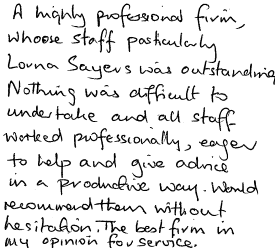 A highly professional firm,
whose staff particularly
Lorna Sayers was outstanding
Nothing was difficult to
undertake and all staff
worked professionally, eager
to help and give advice
in a productive way. Would
recommend them without
hesitation. The best firm in
my opinion for service.